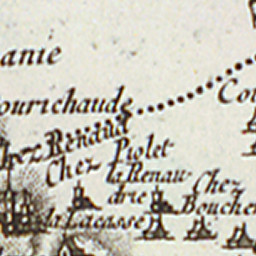 anie
ourichaude
Cou
hez Renaud
Chez Piolet
la Renau-
drie
Chez
Boucher
la Lacasse